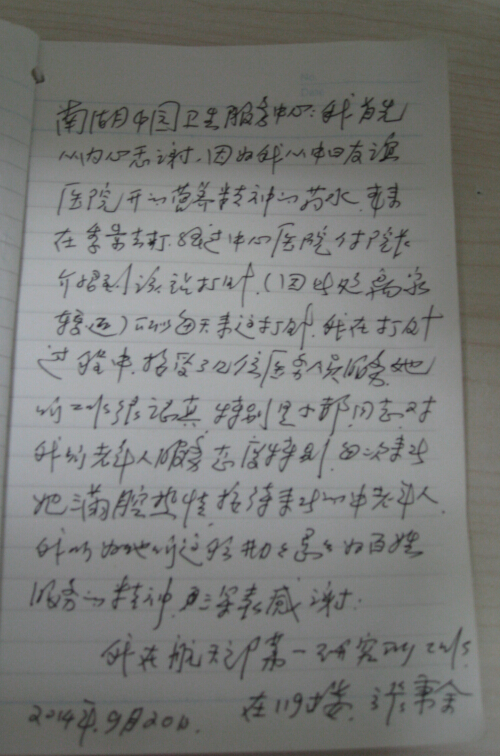 No.
Date
南湖中园卫生服务中心:我首先
从内心感谢,因为我从中日友谊
医院开的营养精神的药水,本来
在季景去打,经过中心医院付院长
介绍到该站打针,(因此处离家
较近)所以每天来这打针,我在打针
过程中,接受了几位医务人员服务,她
们工作很认真,特别是小郝同志,对
我们老年人服务态度特别,每次来打
她之满腔热情接待来打的中老年人,
我们为她们这种勤勤恳恳为百姓
服务的精神,再三深表感谢.
我在航天部第一研究所工作.
在119楼
2014年.9月20日.